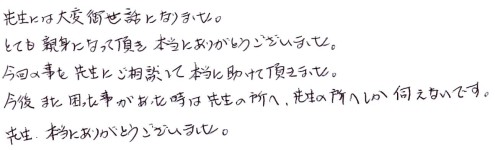 先生には大変御世話になりました。
とても親身になって頂き本当にありがとうございました。
今回の事を先生にご相談して本当に助けて頂きました。
今後また困った事があった時は先生の所へ、先生の所へしか伺えないです。
先生、本当にありがとうございました。